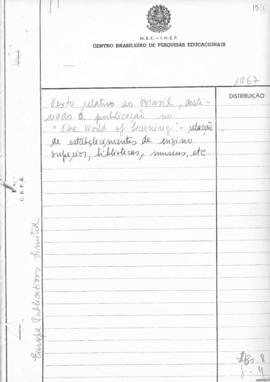 15 1
M.E.C. - I.N.E.P.
CENTRO BRASILEIRO DE PESQUISAS EDUCACIONAIS
1967
DISTRIBUIÇÃO
Texto relativo ao Brasil, desti-
nado a publicação no
"The World of Learning" - relação
de estabelecimentos de ensino
superior, bibliotecas, museus, etc
Europa Publications Limited
C. B. P. E.